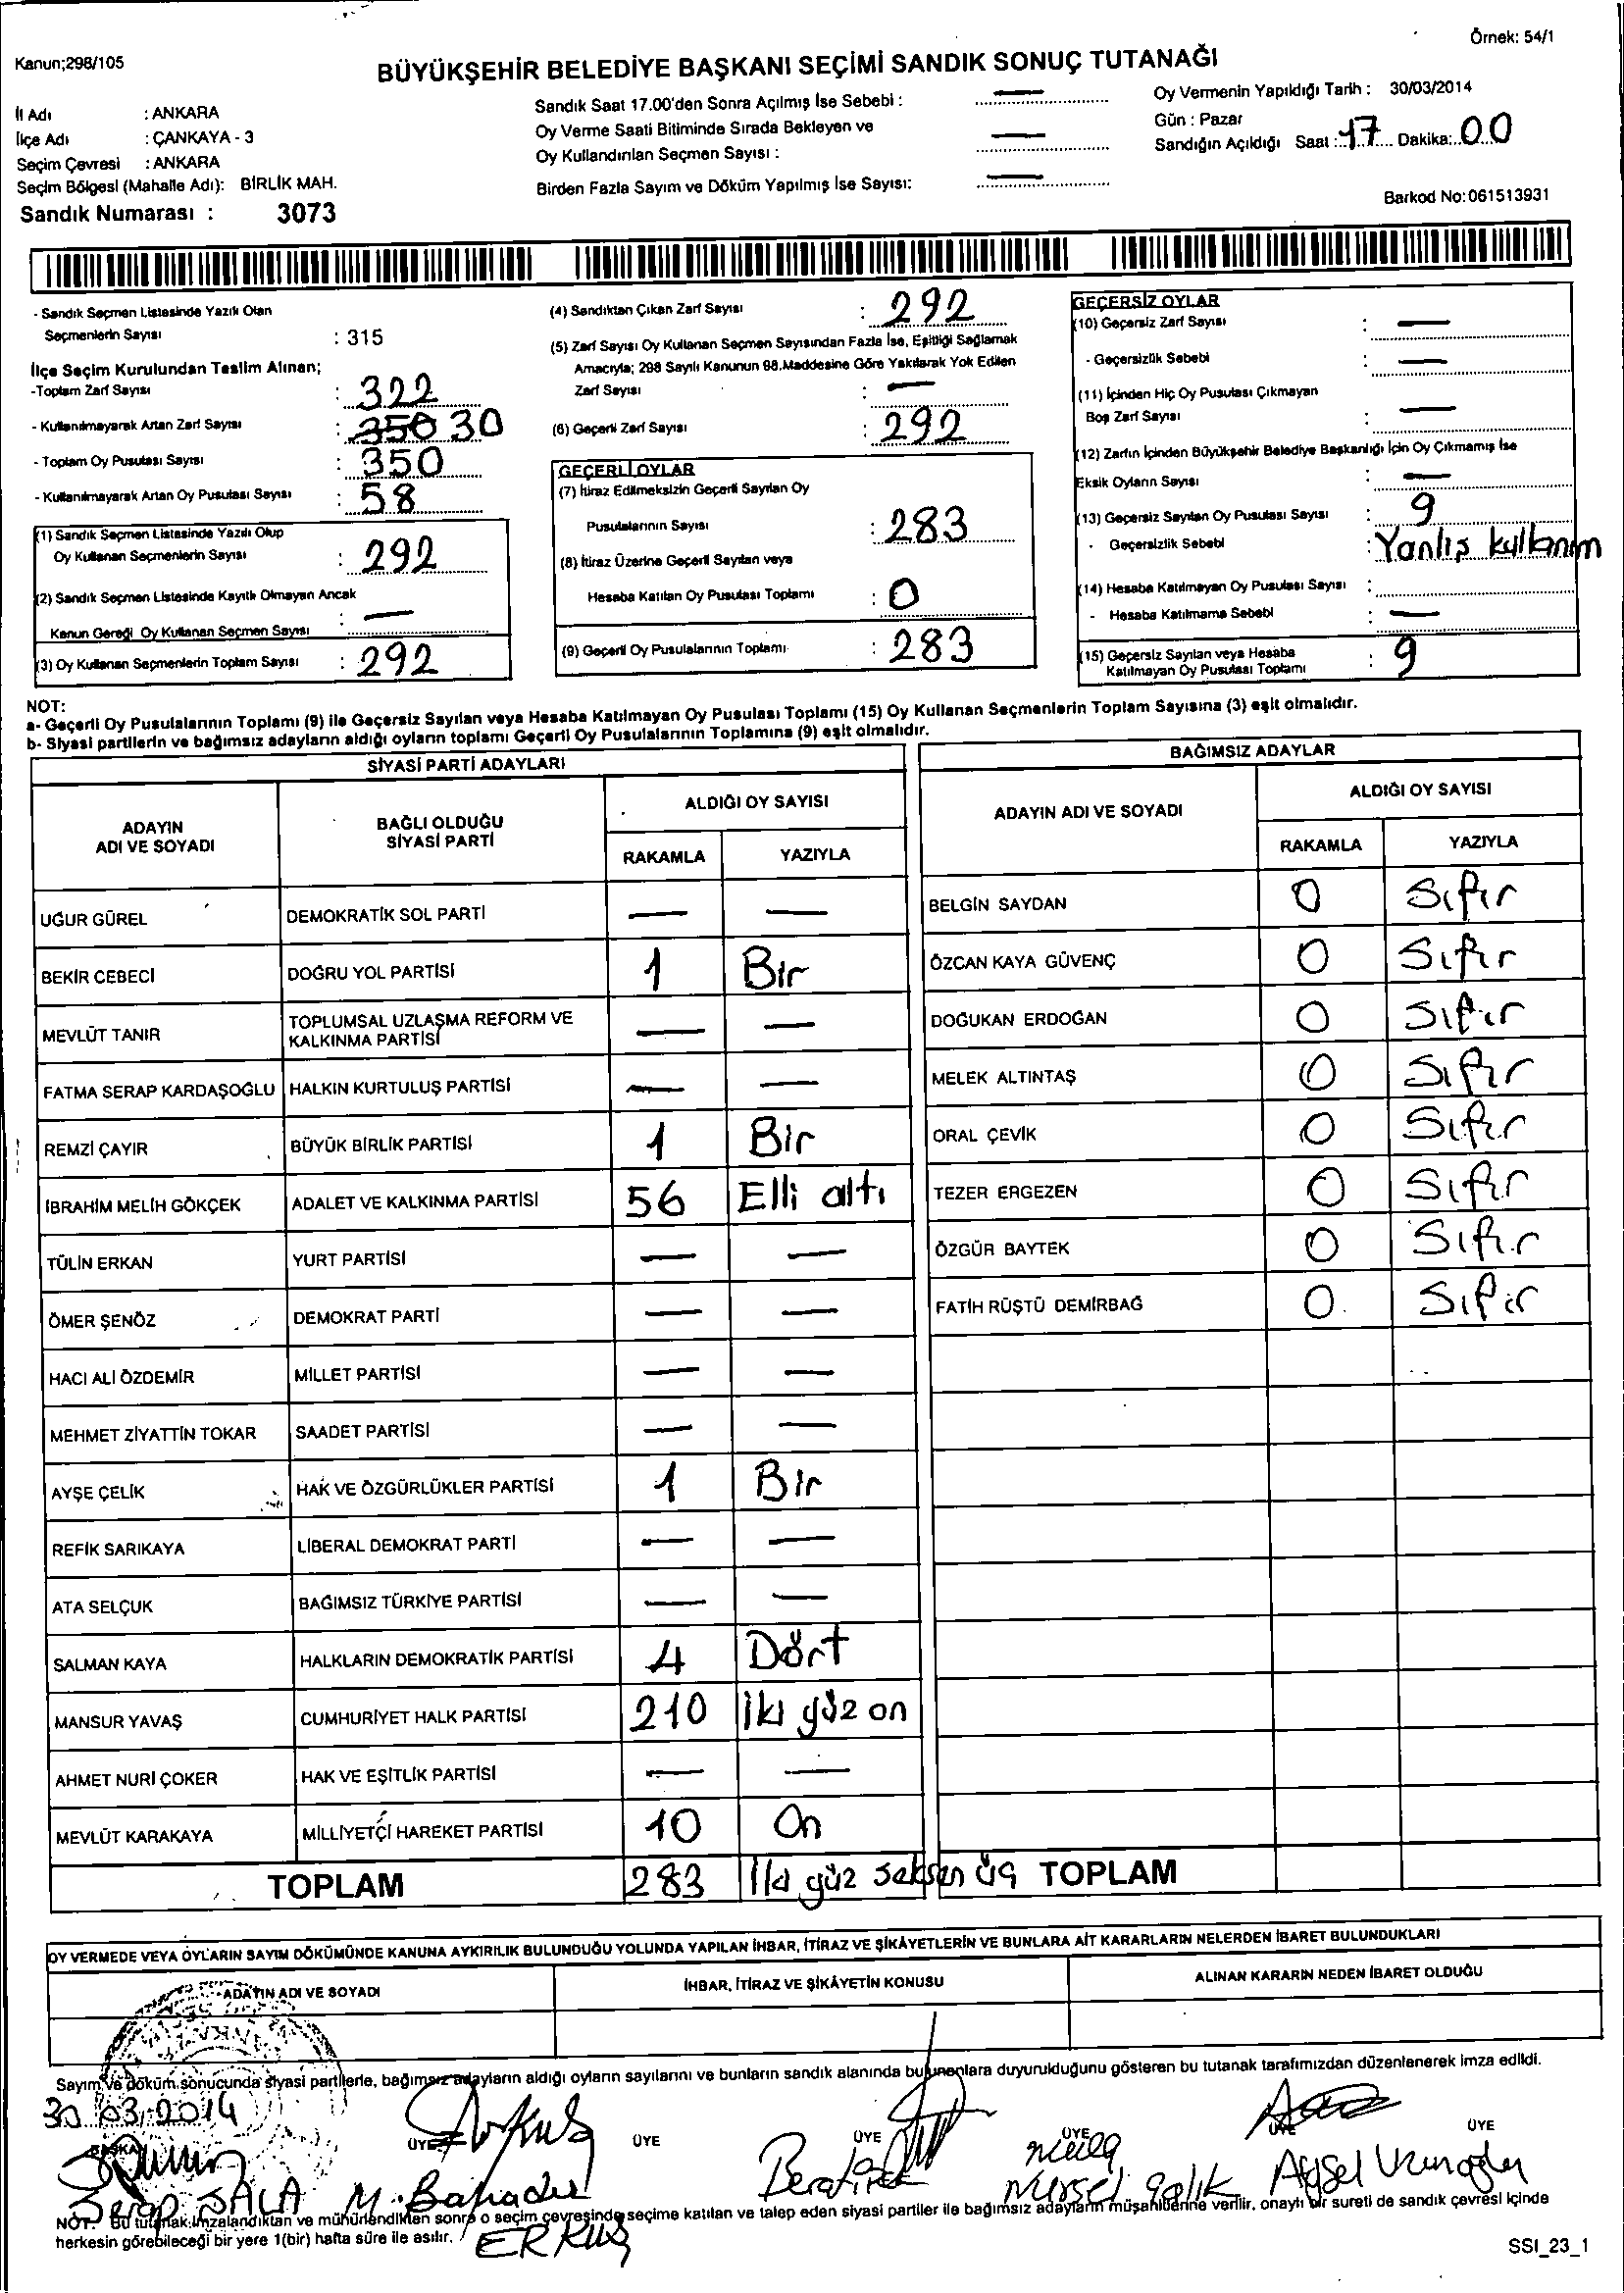 Örnek: 54/1
Kanun;298/105
BÜYÜKŞEHİR BELEDİYE BAŞKANI SEÇİMİ SANDIK SONUÇ TUTANAĞI
İl Adı : ANKARA
İlçe Adı : ÇANKAYA - 3
Seçim Çevresi : ANKARA
Seçim Bölgesi (Mahalle Adı): BİRLİK MAH.
Sandık Numarası : 3073
Sandık Saat 17.00'den Sonra Açılmış İse Sebebi : —
Oy Verme Saati Bitiminde Sırada Bekleyen ve
Oy Kullandırılan Seçmen Sayısı : —
Birden Fazla Sayım ve Döküm Yapılmış İse Sayısı: —
Oy Vermenin Yapıldığı Tarih : 30/03/2014
Gün : Pazar
Sandığın Açıldığı Saat : 17 Dakika: 00
Barkod No:061513931
- Sandık Seçmen Listesinde Yazılı Olan
Seçmenlerin Sayısı : 315
İlçe Seçim Kurulundan Teslim Alınan;
-Toplam Zarf Sayısı : 322
- Kullanılmayarak Artan Zarf Sayısı : 350 30
- Toplam Oy Pusulası Sayısı : 350
- Kullanılmayarak Artan Oy Pusulası Sayısı : 58
(1) Sandık Seçmen Listesinde Yazılı Olup
Oy Kullanan Seçmenlerin Sayısı : 292
(2) Sandık Seçmen Listesinde Kayıtlı Olmayan Ancak
Kanun Gereği Oy Kullanan Seçmen Sayısı : —
(3) Oy Kullanan Seçmenlerin Toplam Sayısı : 292
(4) Sandıktan Çıkan Zarf Sayısı : 292
(5) Zarf Sayısı Oy Kullanan Seçmen Sayısından Fazla İse, Eşitliği Sağlamak
Amacıyla; 298 Sayılı Kanunun 98.Maddesine Göre Yakılarak Yok Edilen
Zarf Sayısı : —
(6) Geçerli Zarf Sayısı : 292
GEÇERLİ OYLAR
(7) İtiraz Edilmeksizin Geçerli Sayılan Oy
Pusulalarının Sayısı : 283
(8) İtiraz Üzerine Geçerli Sayılan veya
Hesaba Katılan Oy Pusulası Toplamı : 0
(9) Geçerli Oy Pusulalarının Toplamı : 283
GEÇERSİZ OYLAR
(10) Geçersiz Zarf Sayısı : —
- Geçersizlik Sebebi : —
(11) İçinden Hiç Oy Pusulası Çıkmayan
Boş Zarf Sayısı : —
(12) Zarfın İçinden Büyükşehir Belediye Başkanlığı İçin Oy Çıkmamış İse
Eksik Oyların Sayısı : —
(13) Geçersiz Sayılan Oy Pusulası Sayısı : 9
- Geçersizlik Sebebi : Yanlış kullanım
(14) Hesaba Katılmayan Oy Pusulası Sayısı :
- Hesaba Katılmama Sebebi : —
(15) Geçersiz Sayılan veya Hesaba
Katılmayan Oy Pusulası Toplamı : 9
NOT:
a- Geçerli Oy Pusulalarının Toplamı (9) ile Geçersiz Sayılan veya Hesaba Katılmayan Oy Pusulası Toplamı (15) Oy Kullanan Seçmenlerin Toplam Sayısına (3) eşit olmalıdır.
b- Siyasi partilerin ve bağımsız adayların aldığı oyların toplamı Geçerli Oy Pusulalarının Toplamına (9) eşit olmalıdır.
SİYASİ PARTİ ADAYLARI
ADAYIN ADI VE SOYADI BAĞLI OLDUĞU SİYASİ PARTİ ALDIĞI OY SAYISI
RAKAMLA YAZIYLA
UĞUR GÜREL DEMOKRATİK SOL PARTİ — —
BEKİR CEBECİ DOĞRU YOL PARTİSİ 1 Bir
MEVLÜT TANIR TOPLUMSAL UZLAŞMA REFORM VE KALKINMA PARTİSİ — —
FATMA SERAP KARDAŞOĞLU HALKIN KURTULUŞ PARTİSİ — —
REMZİ ÇAYIR BÜYÜK BİRLİK PARTİSİ 1 Bir
İBRAHİM MELİH GÖKÇEK ADALET VE KALKINMA PARTİSİ 56 Elli altı
TÜLİN ERKAN YURT PARTİSİ — —
ÖMER ŞENÖZ DEMOKRAT PARTİ — —
HACI ALİ ÖZDEMİR MİLLET PARTİSİ — —
MEHMET ZİYATTİN TOKAR SAADET PARTİSİ — —
AYŞE ÇELİK HAK VE ÖZGÜRLÜKLER PARTİSİ 1 Bir
REFİK SARIKAYA LİBERAL DEMOKRAT PARTİ — —
ATA SELÇUK BAĞIMSIZ TÜRKİYE PARTİSİ — —
SALMAN KAYA HALKLARIN DEMOKRATİK PARTİSİ 4 Dört
MANSUR YAVAŞ CUMHURİYET HALK PARTİSİ 210 İki yüz on
AHMET NURİ ÇOKER HAK VE EŞİTLİK PARTİSİ — —
MEVLÜT KARAKAYA MİLLİYETÇİ HAREKET PARTİSİ 10 On
TOPLAM 283 İki yüz seksen üç
BAĞIMSIZ ADAYLAR
ADAYIN ADI VE SOYADI ALDIĞI OY SAYISI
RAKAMLA YAZIYLA
BELGİN SAYDAN 0 Sıfır
ÖZCAN KAYA GÜVENÇ 0 Sıfır
DOĞUKAN ERDOĞAN 0 Sıfır
MELEK ALTINTAŞ 0 Sıfır
ORAL ÇEVİK 0 Sıfır
TEZER ERGEZEN 0 Sıfır
ÖZGÜR BAYTEK 0 Sıfır
FATİH RÜŞTÜ DEMİRBAĞ 0 Sıfır
TOPLAM
OY VERMEDE VEYA OYLARIN SAYIM DÖKÜMÜNDE KANUNA AYKIRILIK BULUNDUĞU YOLUNDA YAPILAN İHBAR, İTİRAZ VE ŞİKÂYETLERİN VE BUNLARA AİT KARARLARIN NELERDEN İBARET BULUNDUKLARI
ADAYIN ADI VE SOYADI İHBAR, İTİRAZ VE ŞİKÂYETİN KONUSU ALINAN KARARIN NEDEN İBARET OLDUĞU
Sayım ve döküm sonucunda siyasi partilerle, bağımsız adayların aldığı oyların sayılarını ve bunların sandık alanında bulunanlara duyurulduğunu gösteren bu tutanak tarafımızdan düzenlenerek imza edildi.
30.03.2014
BAŞKAN ÜYE ÜYE ÜYE ÜYE ÜYE ÜYE
Serap SALA M. Bahadır ERKUŞ
Nursel Çelik Aysel Uzunoğlu
NOT: Bu tutanak imzalandıktan ve mühürlendikten sonra o seçim çevresinde seçime katılan ve talep eden siyasi partiler ile bağımsız adayların müşahitlerine verilir, onaylı bir sureti de sandık çevresi içinde
herkesin görebileceği bir yere 1(bir) hafta süre ile asılır.
SSI_23_1